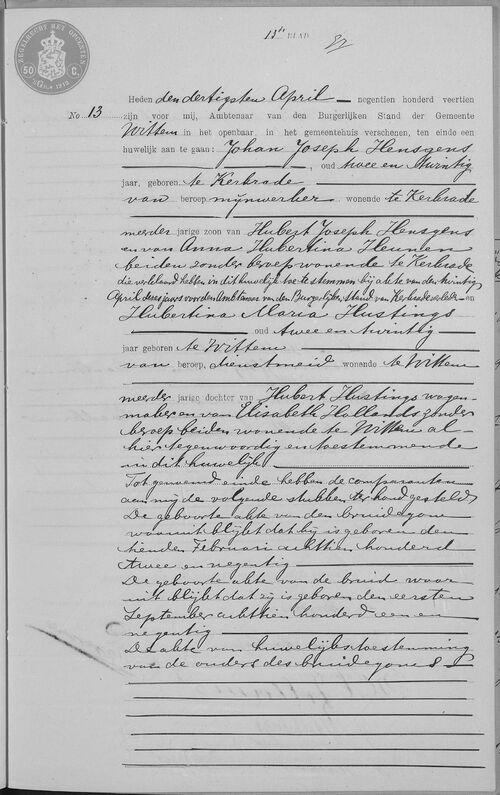 ZEGELRECHT MET OPCENTEN
50 C.
13de BLAD
Heden den dertigsten April negentien honderd veertien
No 13 zijn voor mij, Ambtenaar van den Burgerlijken Stand der Gemeente
Wittem in het openbaar, in het gemeentehuis verschenen, ten einde een
huwelijk aan te gaan: Johan Joseph Hensgens
, oud twee en twintig
jaar, geboren te Kerkrade
van beroep mijnwerker wonende te Kerkrade
meerder jarige zoon van Hubert Joseph Hensgens
en van Anna Hubertina Heunen
beiden zonder beroep wonende te Kerkrade
die verklaard hebben in dit huwelijk toe te stemmen bij akte van den twintig
April dezes jaars voor den Ambtenaar van den Burgerlijken stand van Kerkrade verleden en
Hubertina Maria Hustings
oud twee en twintig
jaar geboren te Wittem
van beroep, dienstmeid wonende te Wittem
meerder jarige dochter van Hubert Hustings wagen-
maker en van Elisabeth Hollands zonder
beroep beiden wonende te Wittem al-
hier tegenwoordig en toestemmende
in dit huwelijk
Tot genoemd einde hebben de comparanten
aan mij de volgende stukken ter hand gesteld
De geboorte akte van den bruidegom
waaruit blijkt dat hij is geboren den
tienden Februari achttien honderd
twee en negentig
De geboorte akte van de bruid waar
uit blijkt dat zij is geboren den eersten
September achttien honderd een en
negentig
De akte van huwelijkstoestemming
van de ouders des bruidegoms